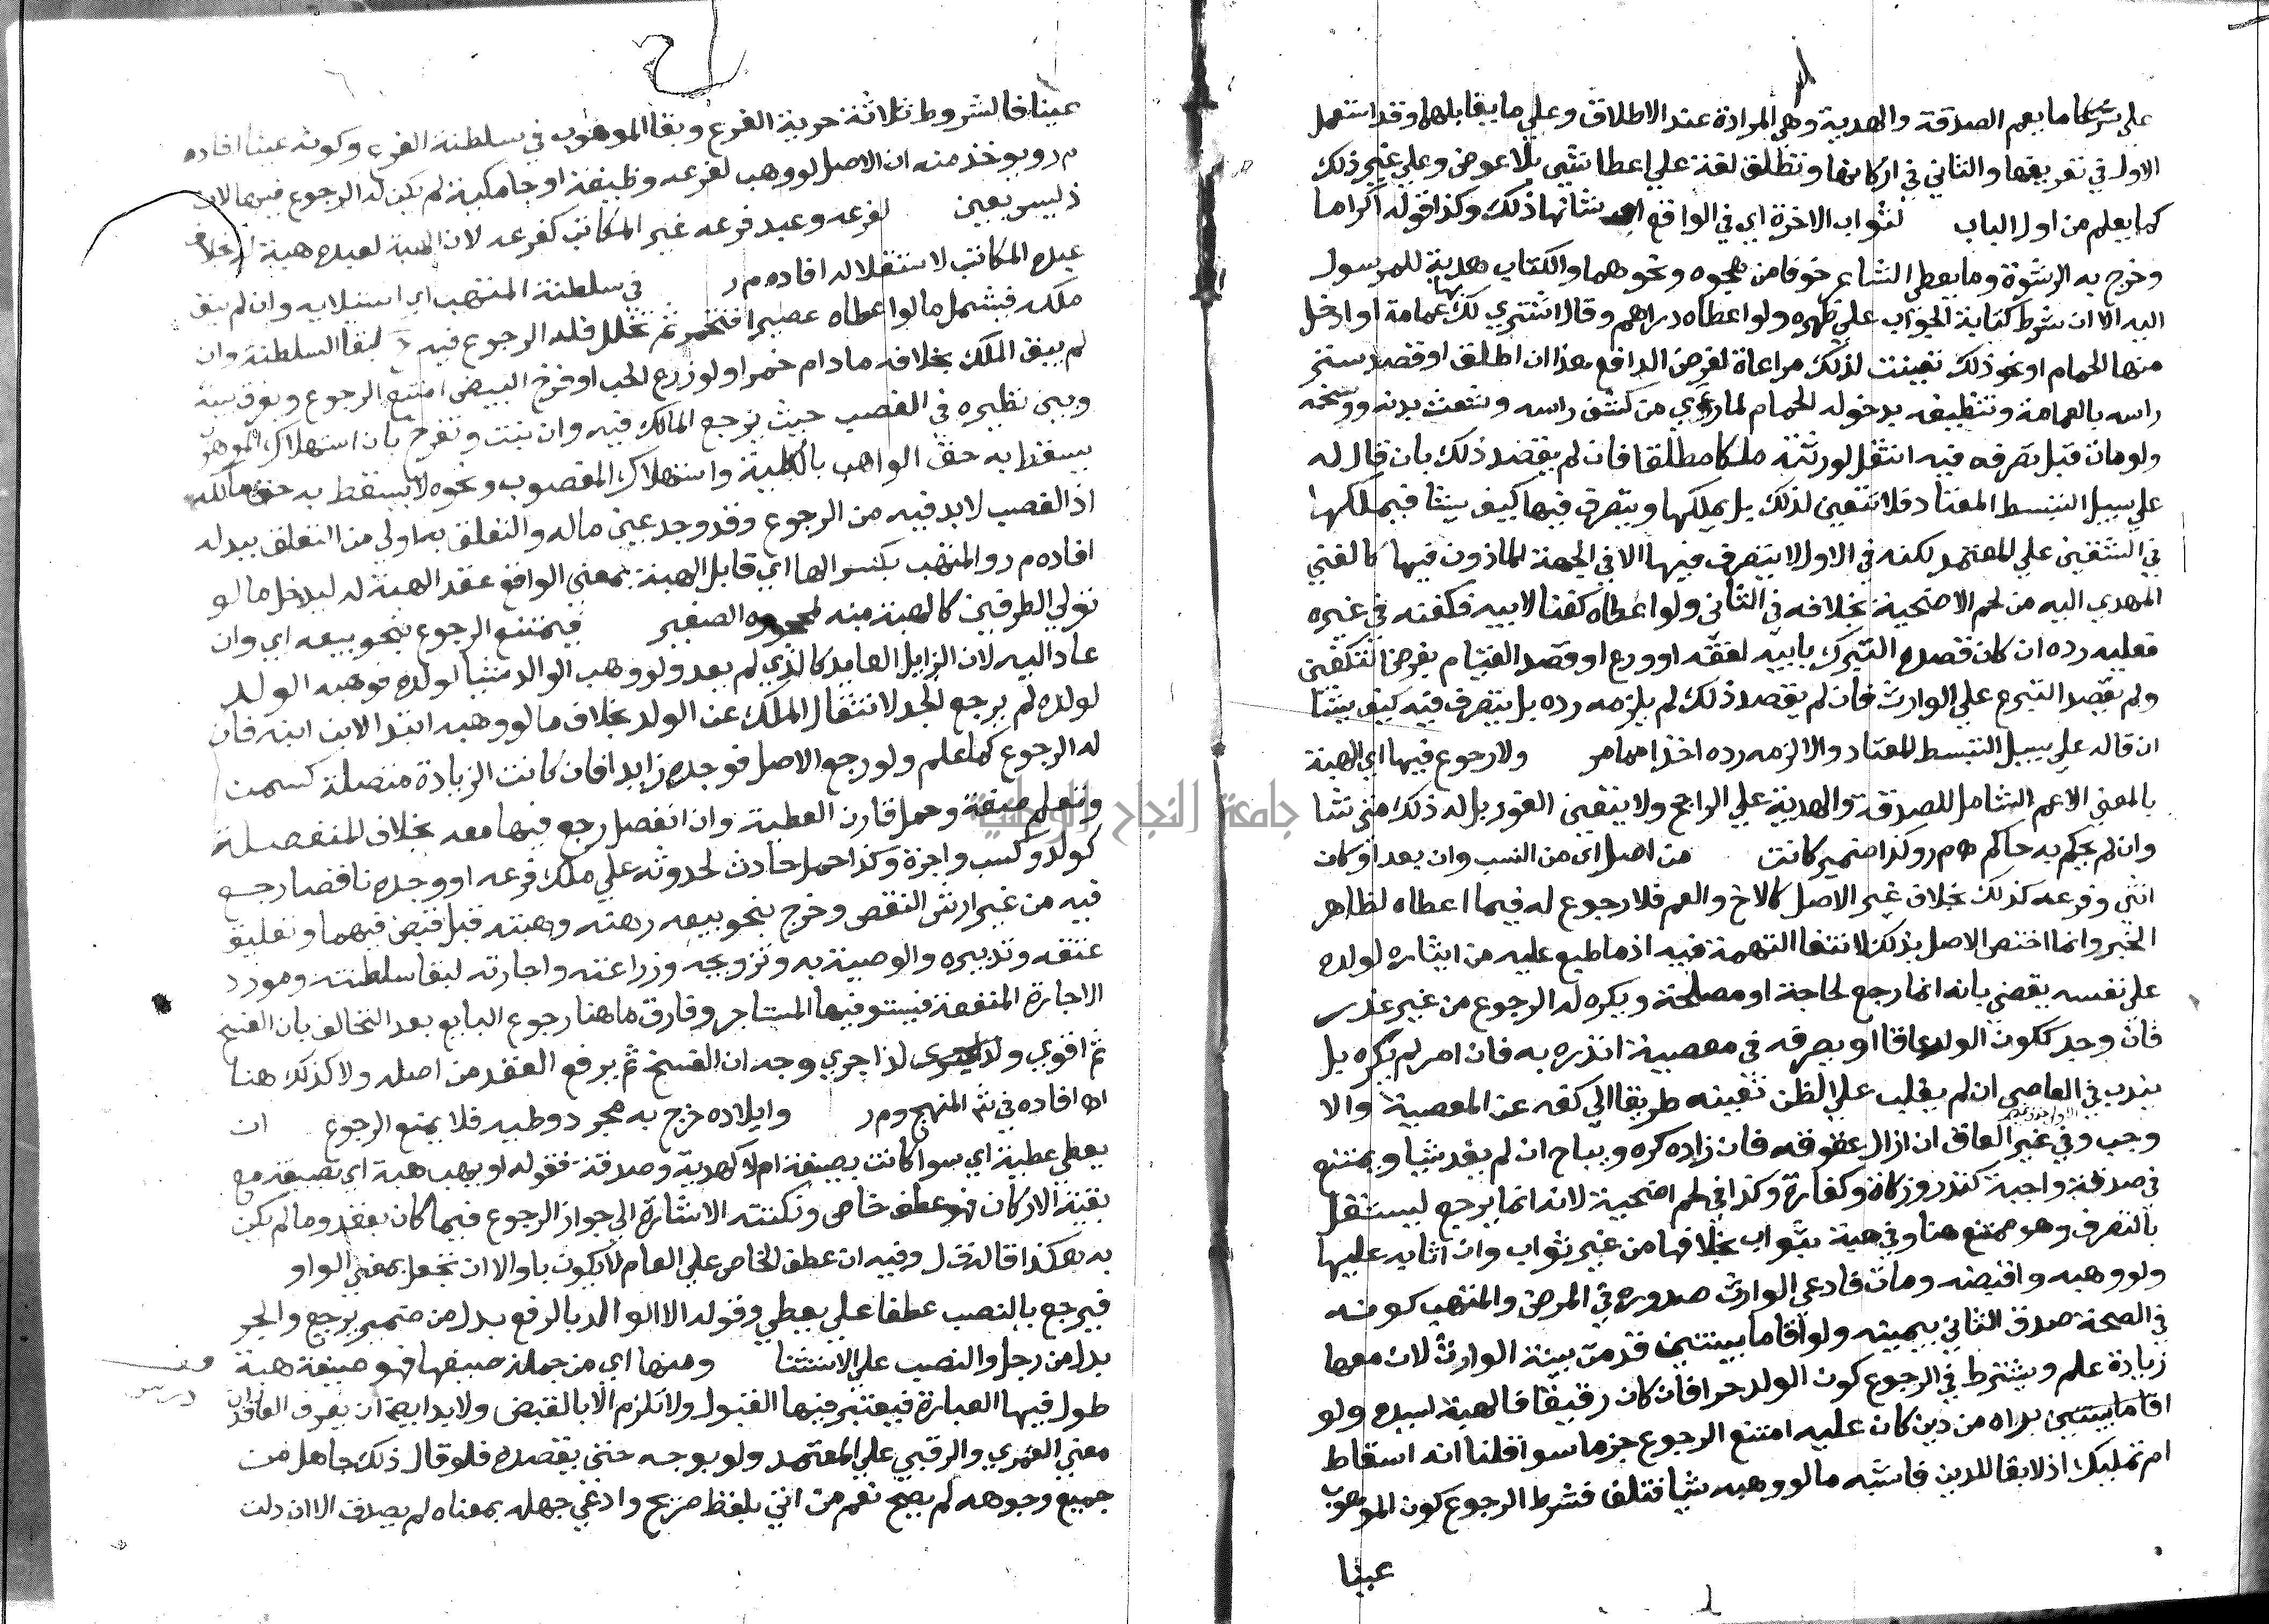 علي شرعا ما يعم الصدقة والهدية وهي المرادة عند الاطلاق وعلي ما يقابلهما وقد استعمل
الاول في تعريفها والثاني في اركانها وتطلق لغة علي اعطا شي بلا عوض وعلي غير ذلك
كما يعلم من اول الباب لثواب الاخرة اي في الواقع شانها ذلك وكذا قوله اكراما
وخرج به الرشوة وما يعطي الشاعر خوفا من هجوه ونحوهما والكتاب هدية للمرسول
اليه الا ان شرط كتابة الجواب علي ظهره ولو اعطاه دراهم وقال اشتري لك بها عمامة او ادخل
منها الحمام او نحو ذلك تعينت لذلك مراعاة لغرض الدافع هذا ان اطلق او قصد ستر
راسه بالعمامة وتنظيفه بدخوله الحمام لما روي من كشف راسه وشعث بدنه ووسخه
ولو مات قبل تصرفه فيه انتقل لورثته ملكا مطلقا فان لم يقصد ذلك بان قال له
علي سبيل التبسط المعتاد فلا تتعين لذلك بل يملكها ويتصرف فيها كيف يشا فيملكها
في الشقين علي المعتمد لكنه في الاول لا يتصرف فيها الا في الجهة الماذون فيها كالغني
المهدي اليه من لحم الاضحية بخلافه في الثاني ولو اعطاه كفنا لابيه فكفنه في غيره
فعليه رده ان كان قصده التبرك بابيه لفقه او ورع او قصد القيام بفرض التكفين
ولم يقصد التبرع علي الوارث فان لم يقصد ذلك لم يلزمه رده بل يتصرف فيه كيف يشا
ان قاله علي سبيل التبسط المعتاد والا لزمه رده اخذا مما مر ولا رجوع فيها اي الهبة
بالمعني الاعم الشامل للصدقة والهدية علي الراجح ولا يتعين الفور بل له ذلك متي شا
وان لم يحكم به حاكم م ر وكذا ضمير كانت من اصل اي من النسب وان بعد او كان
انثي وفرعه كذلك بخلاف غير الاصل كالاخ والعم فلا رجوع له فيما اعطاه لظاهر
الخبر وانما اختص الاصل بذلك لانتفا التهمة فيه اذ ما طبع عليه من ايثاره لولده
علي نفسه يقضي بانه انما رجع لحاجة او مصلحة ويكره له الرجوع من غير عذر
فان وجد ككون الولد عاقا او يصرفه في معصية انذره به فان اصر لم يكره بل
يندب في العاصي ان لم يغلب علي الظن تعينه طريقا الي كفه عن المعصية والا
وجب وفي غير العاق ان ازال عقوقه فان زاده كره ويباح ان لم يفد شيا ويمتنع
في صدقة واجبة كنذر وزكاة وكفارة وكذا في لحم اضحية لانه انما يرجع ليستقل
بالتصرف وهو ممتنع هنا وفي هبة بثواب بخلافها من غير ثواب وان اثابه عليها
ولو وهبه واقبضه ومات فادعي الوارث صدوره في المرض والمتهب كونه
في الصحة صدق الثاني بيمينه ولو اقاما بينتين قدمت بينة الوارث لان معها
زيادة علم ويشترط في الرجوع كون الولد حرا فان كان رقيقا فالهبة لسيده ولو
اقاما بينتين براه من دين كان عليه امتنع الرجوع جزما سوا قلنا انه اسقاط
ام تمليك اذ لا بقا للدين فاشبه ما لو وهبه شيا فتلف فشرط الرجوع كون الموهوب
عينا
عينا فالشروط ثلاثة حرية الفرع وبقا الموهوب في سلطنة الفرع وكونه عينا افاده
م ر ويوخذ منه ان الاصل لو وهب لفرعه وظيفة او جامكية لم يكن له الرجوع فيها لان
ذ ليس بعين لفرعه وعبد فرعه غير المكاتب كفرعه لان الهبة لعبده هبة له بخلاف
عبده المكاتب لاستقلاله افاده م ر في سلطنة المتهب اي استيلايه وان لم يبق
ملكه فيشمل ما لو اعطاه عصيرا فتخمر ثم تخلل فله الرجوع فيه لبقا السلطنة وان
لم يبق الملك بخلافه ما دام خمرا ولو زرع الحب او فرخ البيض امتنع الرجوع وفرق بينه
وبين نظيره في الغصب حيث يرجع المالك فيه وان نبت وتفرخ بان استهلاك الموهوب
يسقط به حق الواهب بالكلية واستهلاك المغصوب ونحوه لا يسقط به حق مالكه
اذ الغصب لا بد فيه من الرجوع وقد وجد عين ماله والتعلق به اولي من التعلق ببدله
افاده م ر والمتهب بكسر الها اي قابل الهبة بمعني الواقع عقد الهبة له ليدخل ما لو
تولي الطرفين كالهبة منه لمحجوره الصغير فيمتنع الرجوع بنحو بيعه اي وان
عاد اليه لان الزايل العايد كالذي لم يعد ولو وهب الوالد شيا لولده فوهبه الولد
لولده لم يرجع الجد لانتقال الملك عن الولد بخلاف ما لو وهبه ابتدا لابن ابنه فان
له الرجوع كما علم ولو رجع الاصل فوجده زايدا فان كانت الزيادة متصلة كسمن
وتعلم صنعة وحمل قارن العطية وان انفصل رجع فيها معه بخلاف المنفصلة
كولد وكسب واجرة وكذا حمل حادث لحدوثه علي ملك فرعه او وجده ناقصا رجع
فيه من غير ارش النقص وخرج بنحو بيعه رهنه وهبته قبل قبض فيهما وتعليق
عتقه وتدبيره والوصية به وتزويجه وزراعته واجارته لبقا سلطنته ومورد
الاجارة المنفعة فيستوفيها المستاجر وفارق ما هنا رجوع البايع بعد التخالف بان الفسخ
ثم اقوي ولذا جري وجه ان الفسخ ثم يرفع العقد من اصله ولا كذلك هنا
اه افاده في شم المنهج وم ر وايلاده خرج به مجرد وطيه فلا يمنع الرجوع ان
يعطي عطية اي سوا كانت بصيغة ام لا كهدية وصدقة فقوله او يهب هبة اي بصيغة مع
بقية الاركان فهو عطف خاص ونكتته الاشارة الي جواز الرجوع فيما كان بعقد وما لم يكن
به هكذا قاله ق ل وفيه ان عطف الخاص علي العام لا يكون باو الا ان تجعل بمعني الواو
فيرجع بالنصب عطفا علي يعطي وقوله الا الوالد بالرفع بدل من ضمير يرجع والجر
بدل من رجل والنصب علي الاستثنا ومنها اي من جملة صيغها فهو صيغة هبة
طول فيها العبارة فيعتبر فيها القبول ولا تلزم الا بالقبض ولا بد ايضا ان يعرف العاقدان
معني العمري والرقبي علي المعتمد ولو بوجه حتي يقصده فلو قال ذلك جاهل من
جميع وجوهه لم يصح نعم من اتي بلفظ صريح وادعي جهله بمعناه لم يصدق الا ان دلت
جامعة النجاح الوطنية